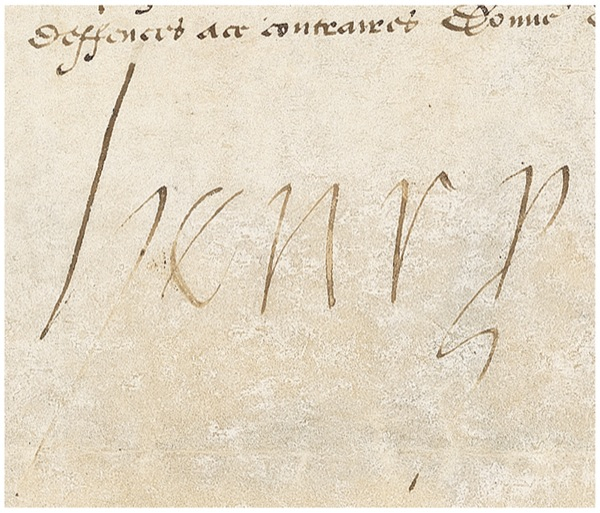 deffences a ce contraires Donné
henry